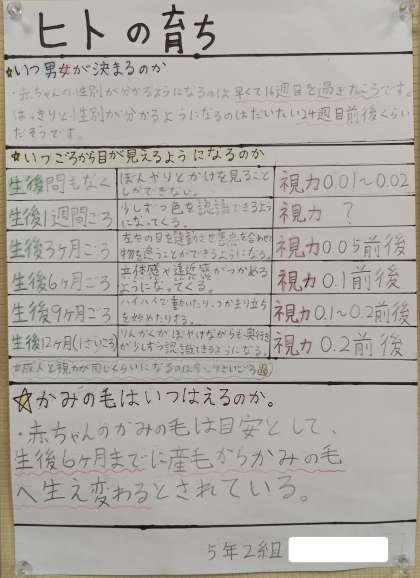 ヒトの育ち
☆いつ男女が決まるのか
・赤ちゃんの性別が分かるようになるのは早くて16週目を過ぎたころです。
はっきりと性別が分かるようになるのはだいたい24週目前後くらい
だそうです。
☆いつごろから目が見えるようになるのか
生後間もなく ぼんやりとかげを見ること
しかできない。 視力0.01〜0.02
生後1週間ごろ 少しずつ色を認識できるよう
になってくる。 視力 ?
生後3ヶ月ごろ 左右の目を連動させ焦点を合わせ
物を追うことができるようになる。 視力0.05前後
生後6ヶ月ごろ 立体感や遠近感がつかめる
ようになってくる。 視力0.1前後
生後9ヶ月ごろ ハイハイで動いたり、つかまり立ち
を始めたりする。 視力0.1〜0.2前後
生後12ヶ月(1さいごろ) りんかくがぼやけながらも、奥行き
が少しずつ認識できるようになる。 視力0.2前後
成人と視力が同じくらいになるのは
☆かみの毛はいつはえるのか。
・赤ちゃんのかみの毛は目安として、
生後6ヶ月までに産毛からかみの毛
へ生え変わるとされている。
5年2組